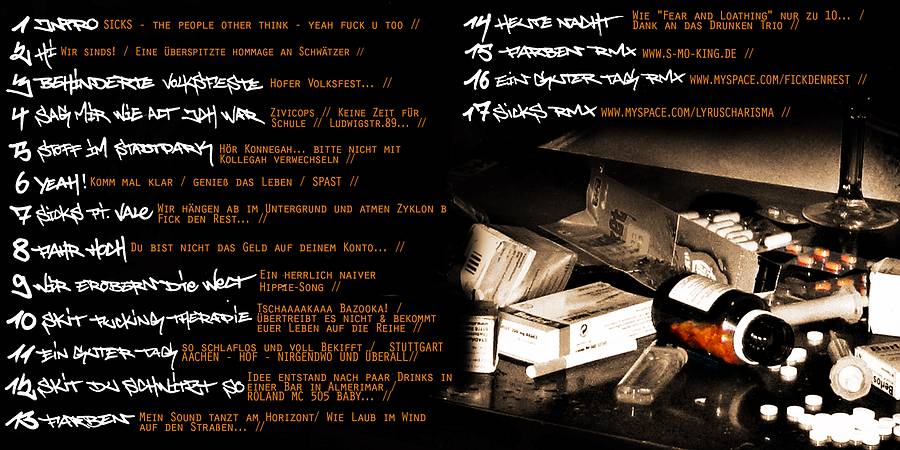 1 INTRO SICKS - THE PEOPLE OTHER THINK - YEAH FUCK U TOO //
2 HI WIR SINDS! / EINE ÜBERSPITZTE HOMMAGE AN SCHWÄTZER //
3 BEHINDERTE VOLKSFESTE HOFER VOLKSFEST... //
4 SAG MIR WIE ALT ICH WAR ZIVICOPS // KEINE ZEIT FÜR
SCHULE // LUDWIGSTR.89... //
5 STOFF IM STADTPARK HÖR KONNEGAH... BITTE NICHT MIT
KOLLEGAH VERWECHSELN //
6 YEAH! KOMM MAL KLAR / GENIEß DAS LEBEN / SPAST //
7 SICKS FT. VALE WIR HÄNGEN AB IM UNTERGRUND UND ATMEN ZYKLON B
FICK DEN REST... //
8 FAHR HOCH DU BIST NICHT DAS GELD AUF DEINEM KONTO... //
9 WIR EROBERN DIE WELT EIN HERRLICH NAIVER
HIPPIE-SONG //
10 SKIT FUCKING THERAPIE TSCHAAAAKAAA BAZOOKA! /
ÜBERTREIBT ES NICHT & BEKOMMT
EUER LEBEN AUF DIE REIHE //
11 EIN GUTER TAG SO SCHLAFLOS UND VOLL BEKIFFT / STUTTGART
AACHEN - HOF - NIRGENDWO UND ÜBERALL//
12 SKIT DU SCHWITZT SO IDEE ENTSTAND NACH PAAR DRINKS IN
EINER BAR IN ALMERIMAR /
ROLAND MC 505 BABY... //
13 FARBEN MEIN SOUND TANZT AM HORIZONT/ WIE LAUB IM WIND
AUF DEN STRAßEN... //
14 HEUTE NACHT WIE "FEAR AND LOATHING" NUR ZU 10... /
DANK AN DAS DRUNKEN TRIO //
15 FARBEN RMX WWW.S-MO-KING.DE //
16 EIN GUTER TAG RMX WWW.MYSPACE.COM/FICKDENREST //
17 SICKS RMX WWW.MYSPACE.COM/LYRUSCHARISMA //